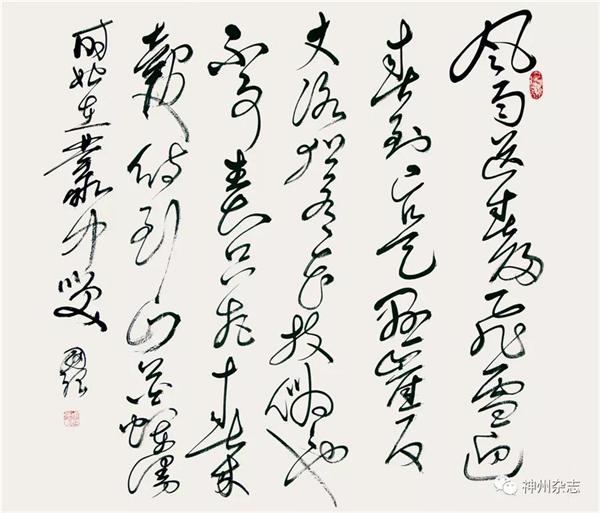 风雨送春归飞雪迎
春到已是悬崖百
丈冰猶有花枝俏俏也
不争春只把春来
報待到山花爛漫
时她在叢中笑
神州杂志